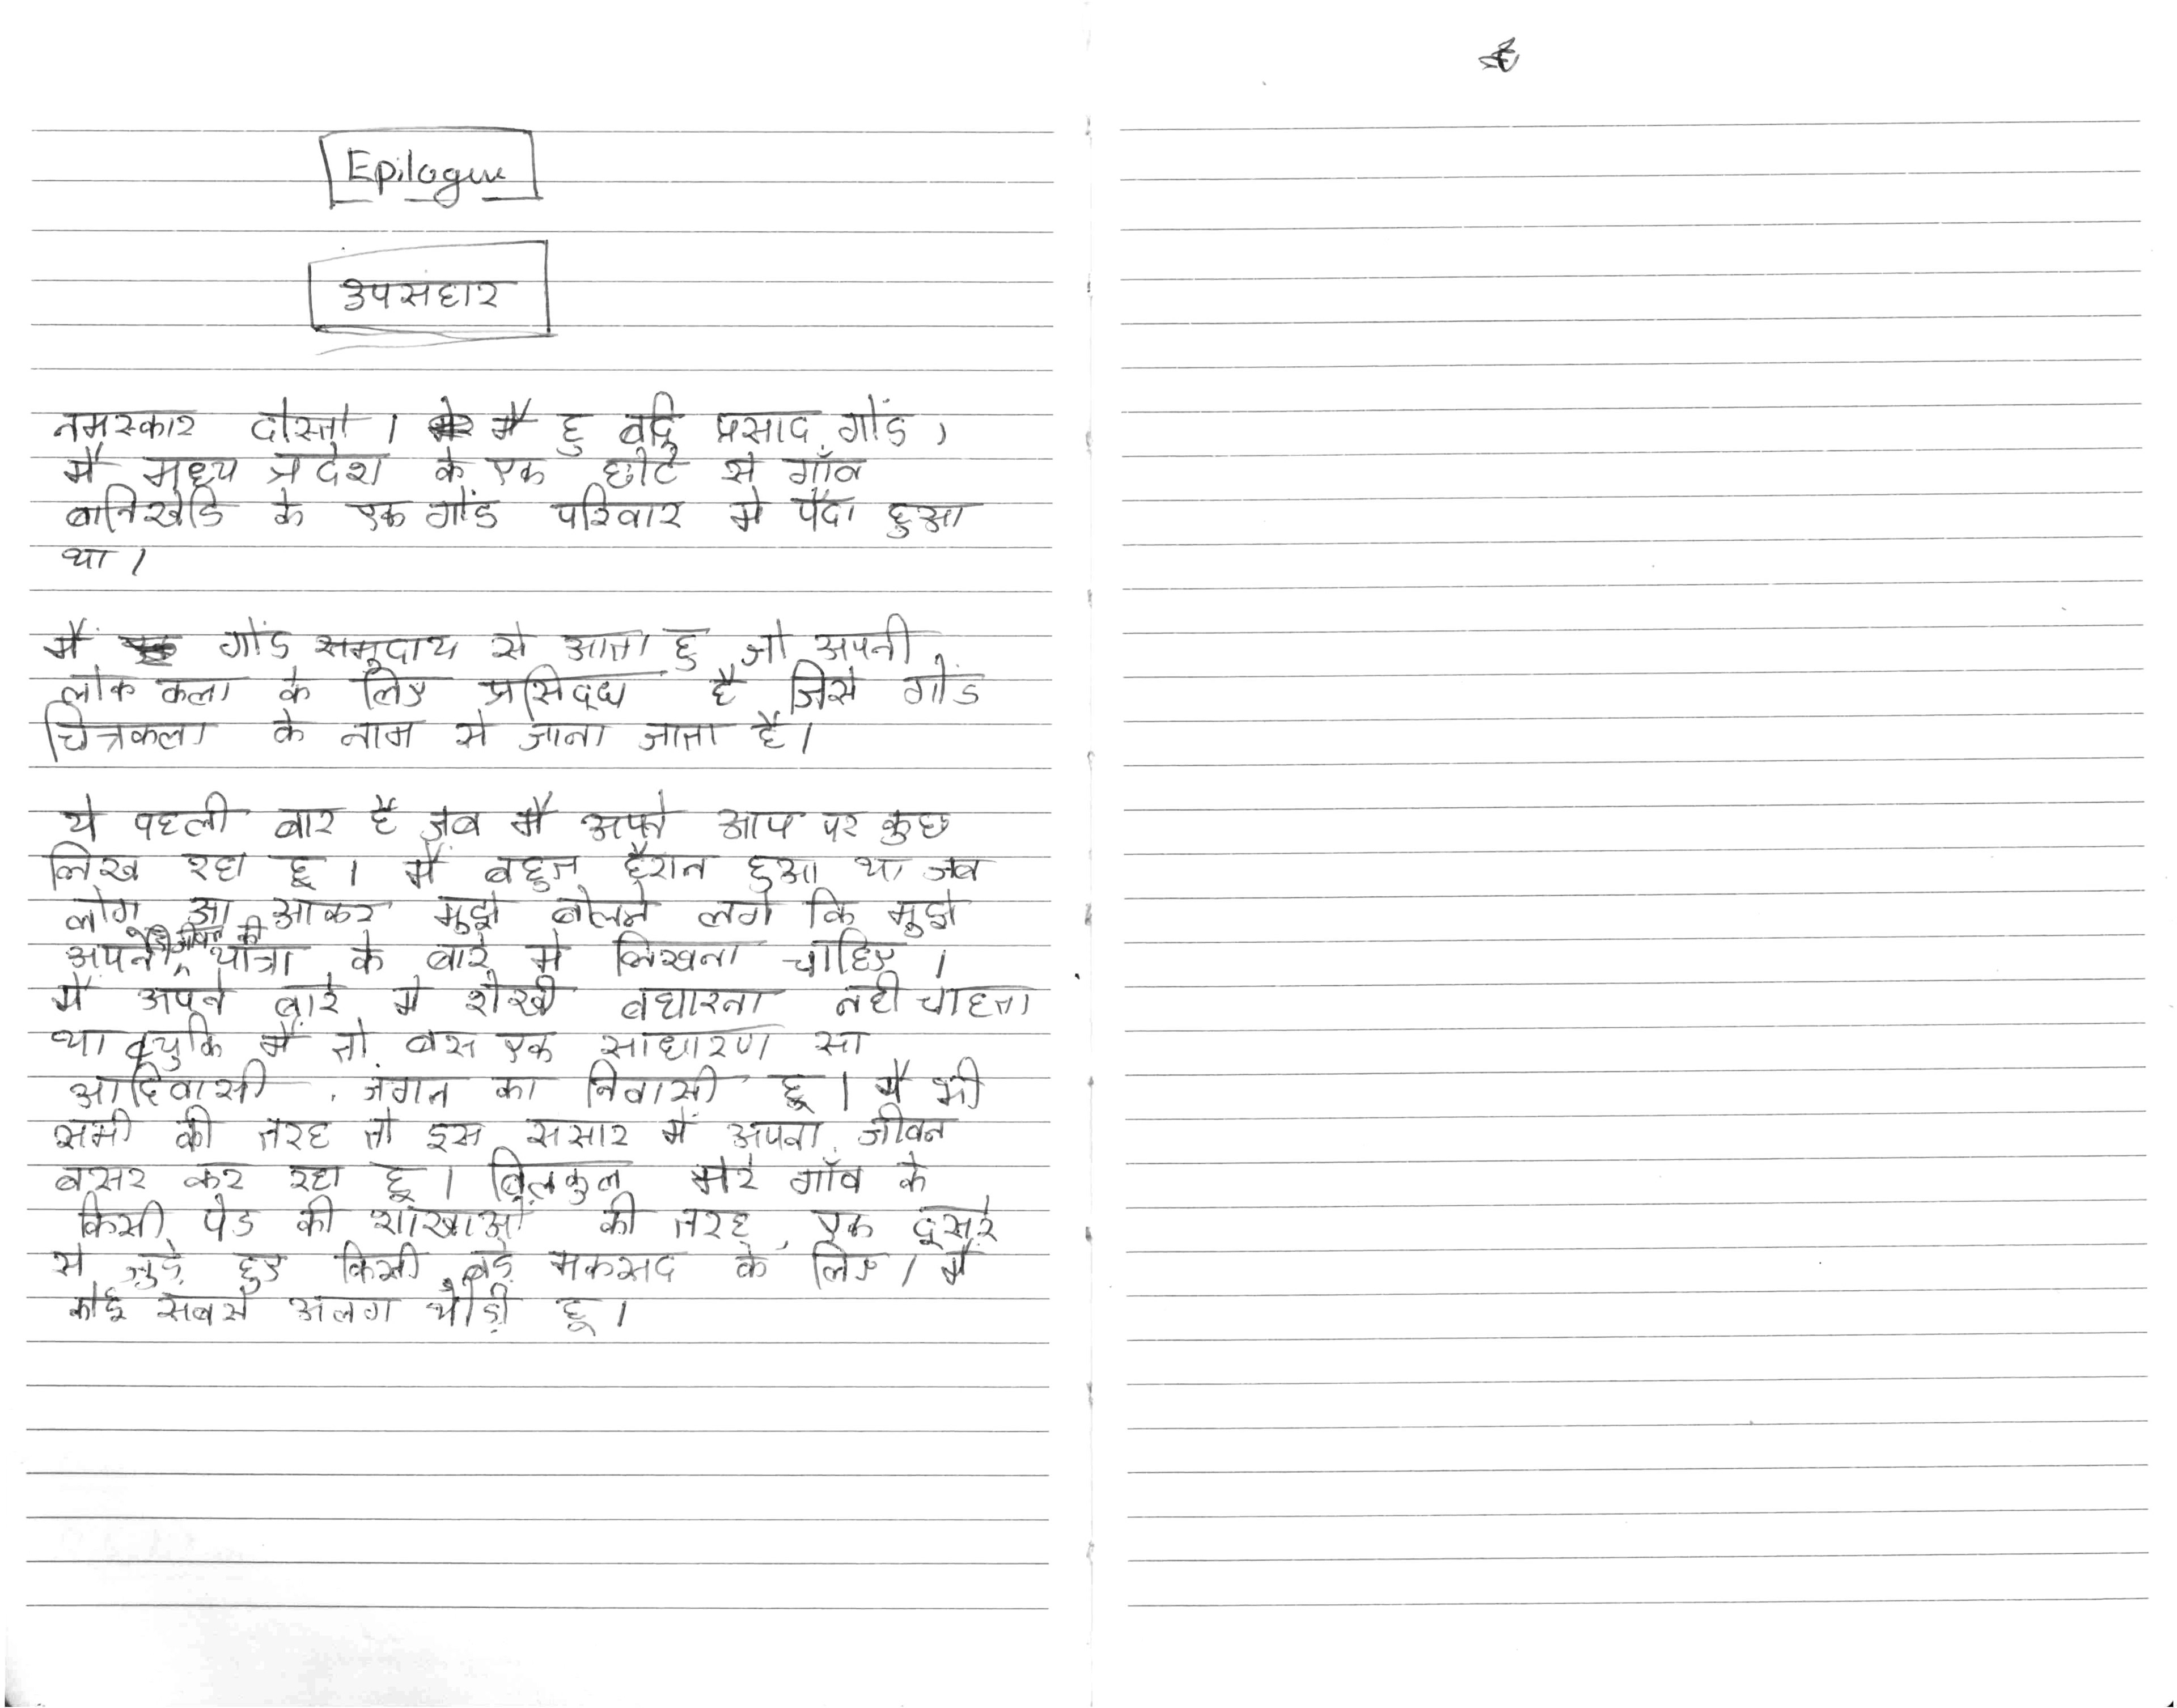 Epilogue
उपसंहार
नमस्कार दोस्तो। मै हु बद्रि प्रसाद गोंड,
मै मध्य प्रदेश के एक छोटे से गाँव
बानिखेडि के एक गोंड परिवार मे पैदा हुआ
था।
मैं गोंड समुदाय से आता हु जो अपनी
लोक कला के लिए प्रसिद्ध है जिसे गोंड
चित्रकला के नाम से जाना जाता है।
ये पहली बार है जब मै अपने आप पर कुछ
लिख रहा हू। मैं बहुत हैरान हुआ था जब
लोग आ आकर मुझे बोलने लगे कि मुझे
अपने जीवन की यात्रा के बारे मे लिखना चाहिए।
मै अपने बारे मे शेखी बघारना नही चाहता
था क्युकि मैं तो बस एक साधारण सा
आदिवासी, जंगल का निवासी हू। मै भी
सभी की तरह तो इस संसार मैं अपना जीवन
बसर कर रहा हू। बिलकुल मेरे गाँव के
किसी पेड की शाखाओं की तरह, एक दूसरे
से जुड़े हुए किसी बड़े मकसद के लिए। मै
कोई सबसे अलग थोड़ी हू।